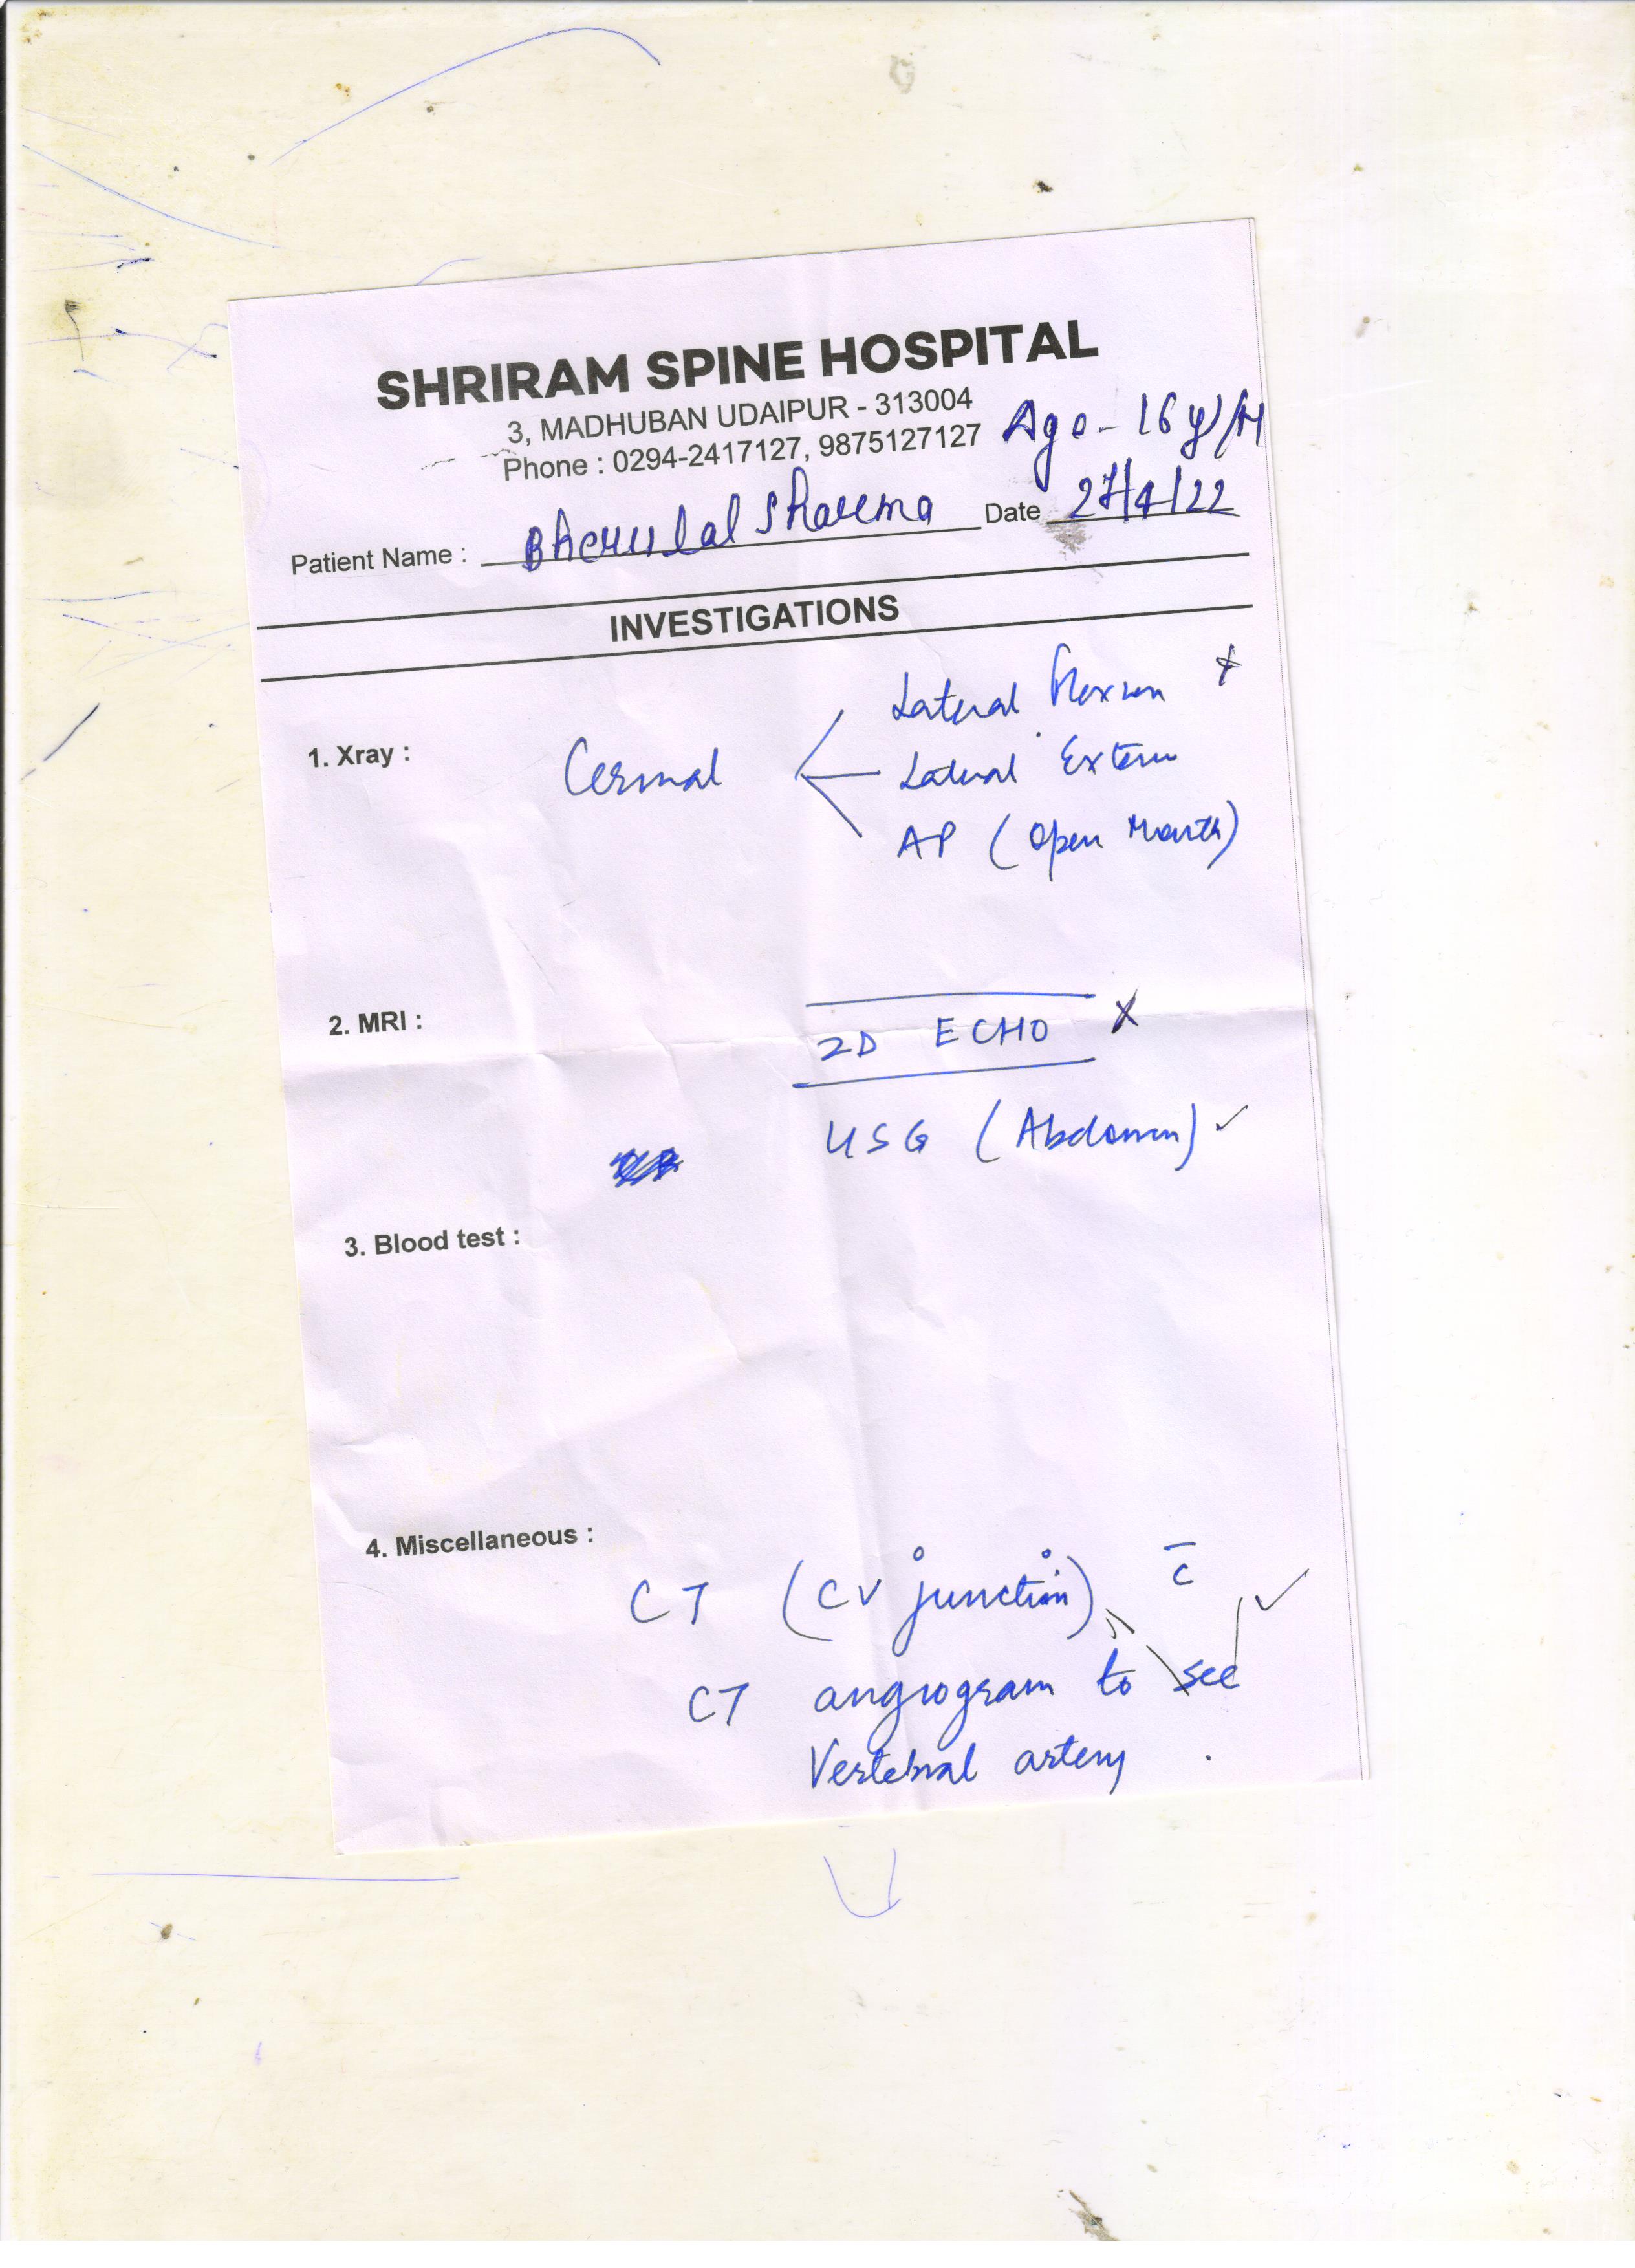 SHRIRAM SPINE HOSPITAL
3, MADHUBAN UDAIPUR - 313004
Phone : 0294-2417127, 9875127127
Age - 16 y/M
Patient Name : Bherulal Sharma Date 27/4/22
INVESTIGATIONS
1. Xray : Cervical
Lateral Flexion
Lateral Exten
AP (Open Mouth)
2. MRI :
2D ECHO X
USG (Abdomen) ✓
3. Blood test :
4. Miscellaneous :
CT (CV junction) c̄ ✓
CT angiogram to see
Vertebral artery